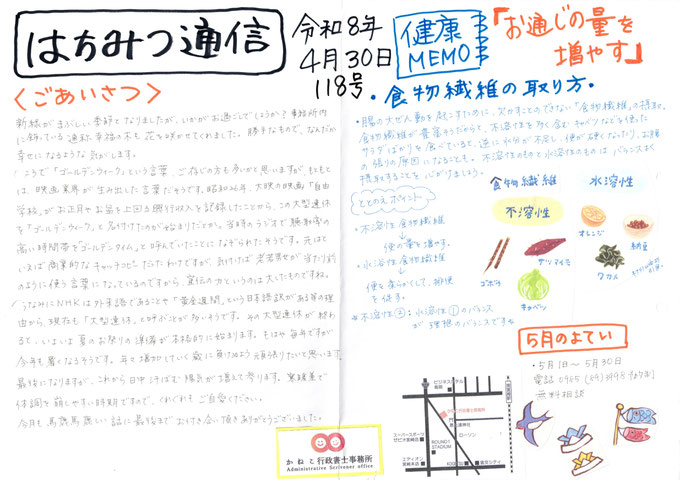 はちみつ通信
令和8年
4月30日
118号
健康
MEMO
「お通じの量を
増やす」
〈ごあいさつ〉
新緑がまぶしい季節となりましたが、いかがお過ごしでしょうか？事務所内
に飾っている通称幸福の木も花を咲かせてくれました。勝手なもので、なんだか
幸せになるような気がします。
ところで「ゴールデンウィーク」という言葉、ご存じの方も多いかと思いますが、もともと
は、映画業界が生み出した言葉だそうです。昭和26年、大映の映画「自由
学校」がお正月やお盆を上回る興行収入を記録したことから、この大型連休
を「ゴールデンウィーク」と名付けたのが始まりだとか。当時のラジオで聴取率の
高い時間帯を「ゴールデンタイム」と呼んでいたことになぞらえたそうです。元はと
いえば商業的なキャッチコピーだったわけですが、気付けば老若男女が当たり前
のように使う言葉になっているのですから、宣伝の力というのは大したものですね。
ちなみにNHKは外来語であることや「黄金週間」という日本語訳がある等の理
由から、現在も「大型連休」と呼ぶことが多いそうです。その大型連休が終わ
ると、いよいよ夏のお祭りの準備が本格的に始まります。もはや毎年ですが
今年も暑くなるそうです。年々増加していく歳に負けぬよう頑張りたいと思います。
最後になりますが、これから日中汗ばむ陽気が増えて参ります。寒暖差で
体調を崩しやすい時期ですので、くれぐれもご自愛ください。
今月も馬鹿馬鹿しい話に最後までお付き合い頂きありがとうございました。
・食物繊維の取り方・
・腸の大ぜん動を起こすために、欠かすことのできない「食物繊維」の摂取。
食物繊維が豊富だからと、不溶性を多く含むキャベツなどを使った
サラダばかりを食べていると、逆に水分が不足し、便が硬くなったり、お腹
の張りの原因になることも。不溶性のものと水溶性のものはバランスよく
摂取することを心がけましょう。
ととのえポイント
・不溶性食物繊維
↓
便の量を増やす。
・水溶性食物繊維
↓
便を柔らかくして、排便
を促す。
※不溶性②:水溶性①のバランス
が理想のバランスです※
食物繊維
不溶性
水溶性
ゴボウ
サツマイモ
キャベツ
オレンジ
納豆
ワカメ
5月のよてい
・5月1日〜5月30日
無料相談
かねこ行政書士事務所
Administrative Scrivener office
ビジネスホテル
かねこ行政書士事務所
ローソン
スーパースポーツ
ゼビオ宮崎店
ROUND1
STADIUM
エディオン
宮崎本店
600CLUB
東京シティ